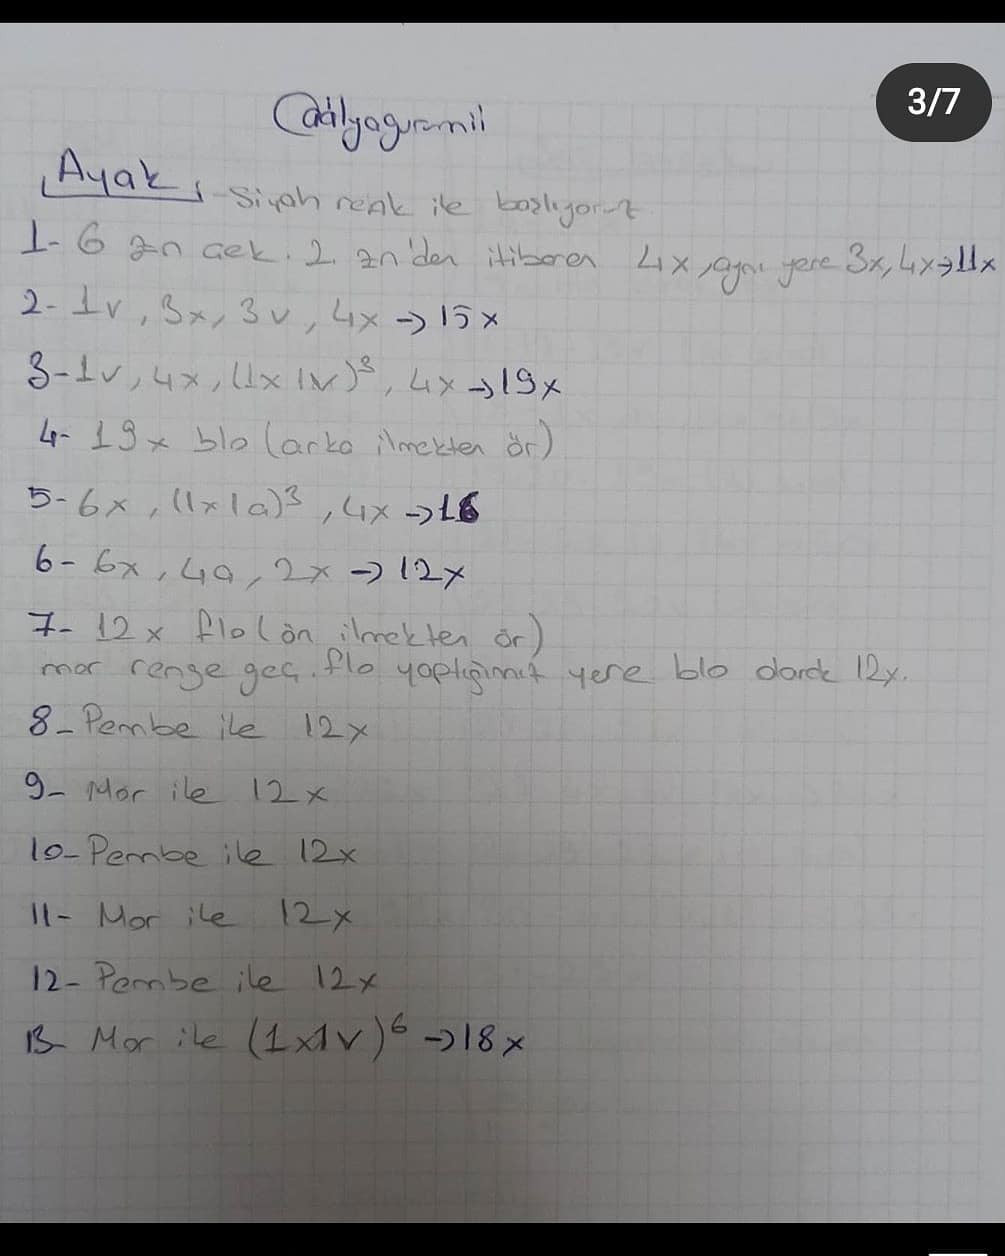 3/7
@dalyagurmil
Ayak, -Siyah renk ile başlıyoruz
1- 6 zn çek. 2. zn'den itibaren 4x, aynı yere 3x, 4x → 11x
2- 1v, 3x, 3v, 4x → 15x
3- 1v, 4x, (1x 1v)³, 4x → 19x
4- 19x blo (arka ilmekten ör)
5- 6x, (1x1a)³, 4x → 16
6- 6x, 4a, 2x → 12x
7- 12x flo (ön ilmekten ör)
mor renge geç. flo yaptığımız yere blo darak 12x.
8- Pembe ile 12x
9- Mor ile 12x
10- Pembe ile 12x
11- Mor ile 12x
12- Pembe ile 12x
13- Mor ile (1x1v)⁶ → 18x